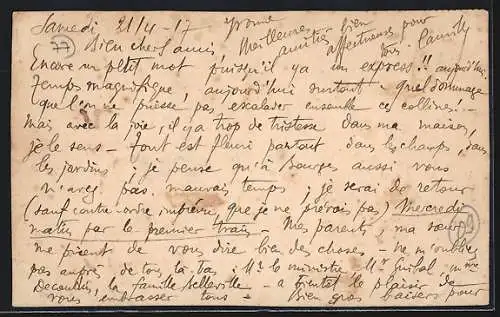 Samedi 21/4-17 Yvonne
Meilleures bien
amitiés affectueuses pour
tous. Camille
77
Bien chers amis
Encore un petit mot puisqu'il y a un express !! aujourd'hui
temps magnifique, aujourd'hui surtout - quel dommage
que l'on ne puisse pas escalader ensemble ces collines ! -
Mais avec la joie, il y a trop de tristesse dans ma maison,
je le sens - tout est fleuri partout dans les champs, dans
les jardins ; je pense qu'à Bourges aussi vous
n'avez pas mauvais temps ; je serai de retour
(sauf contre-ordre imprévu que je ne prévois pas) Mercredi
matin par le premier train - Mes parents, ma sœur
me prient de vous dire bien des choses - ne m'oubliez
pas auprès de tous là-bas : Mr le ministre Mr mme
la famille Belleville - a bientôt le plaisir de
vous embrasser tous - Bien gros baisers pour